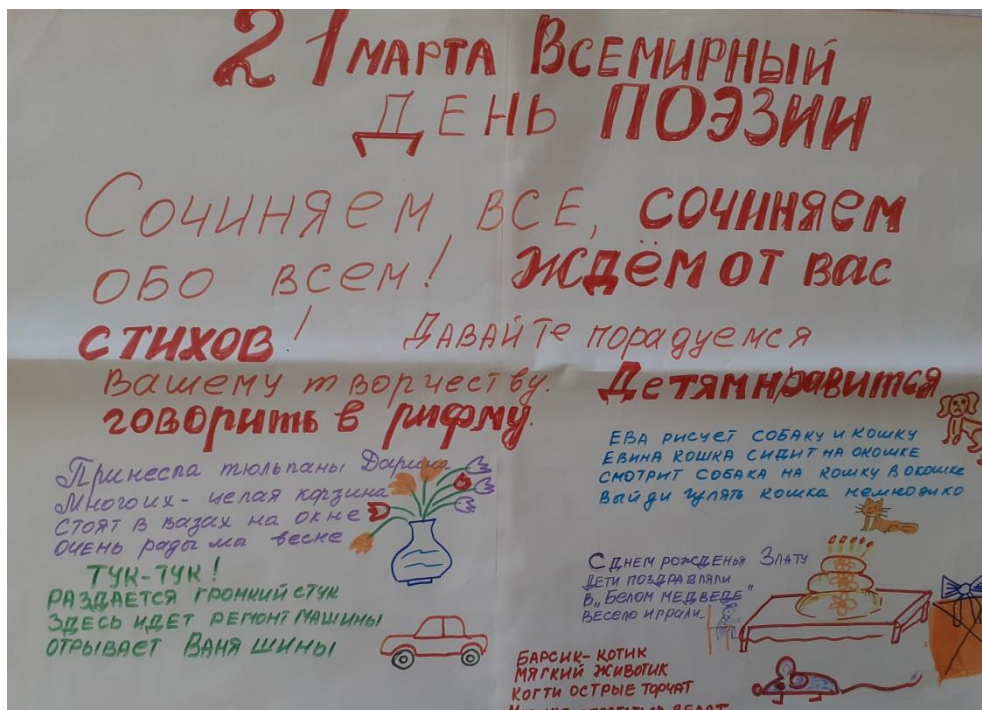 21 МАРТА ВСЕМИРНЫЙ
ДЕНЬ ПОЭЗИИ
СОЧИНЯЕМ ВСЕ, СОЧИНЯЕМ
ОБО ВСЕМ! ЖДЁМ ОТ ВАС
СТИХОВ! ДАВАЙТЕ порадуемся
Вашему творчеству. Детям нравится
говорить в рифму.
Принесла тюльпаны Дарина
Много их - целая корзина
СТОЯТ В вазах на окне
ОЧЕНЬ рады мы весне
ТУК-ТУК!
РАЗДАЕТСЯ ГРОМКИЙ СТУК
ЗДЕСЬ ИДЕТ РЕМОНТ МАШИНЫ
ОТРЫВАЕТ ВАНЯ ШИНЫ
ЕВА РИСУЕТ СОБАКУ И КОШКУ
ЕВИНА КОШКА СИДИТ НА ОКОШКЕ
СМОТРИТ СОБАКА НА КОШКУ В ОКОШКЕ
ВЫЙДИ ГУЛЯТЬ КОШКА НЕМНОЖКО
С ДНЕМ РОЖДЕНЬЯ ЗЛАТУ
ДЕТИ ПОЗДРАВЛЯЛИ
В „БЕЛОМ МЕДВЕДЕ"
ВЕСЕЛО ИГРАЛИ.
БАРСИК-КОТИК
МЯГКИЙ ЖИВОТИК
КОГТИ ОСТРЫЕ ТОРЧАТ